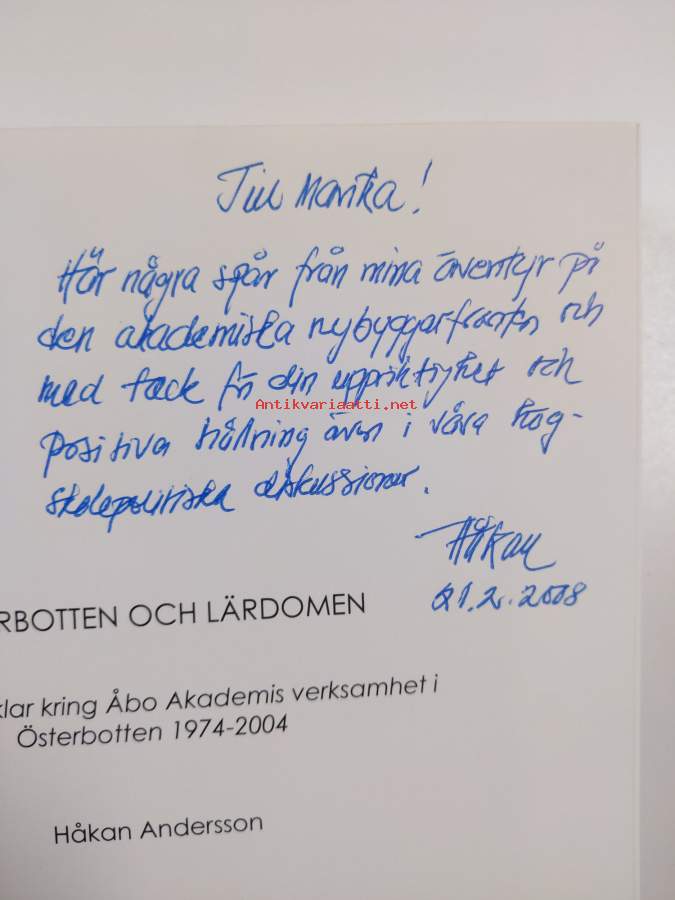 Till Marika!
Här några spår från mina äventyr på
den akademiska nybyggarfronten och
med tack för din uppriktighet och
Antikvariaatti.net
positiva hållning även i våra hög-
skolepolitiska diskussioner.
Håkan
21.2.2008
RBOTTEN OCH LÄRDOMEN
klar kring Åbo Akademis verksamhet i
Österbotten 1974-2004
Håkan Andersson